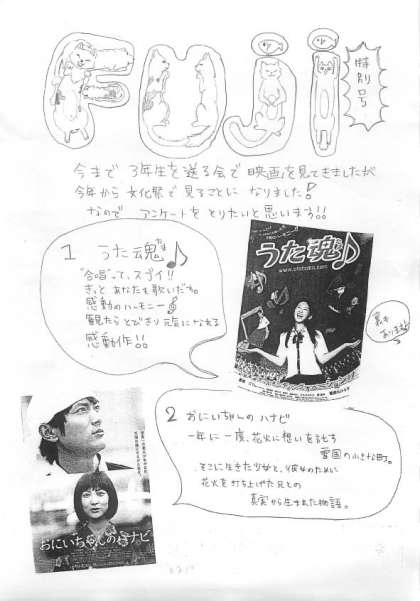 FUJi
特別号
今まで 3年生を送る会で 映画を見てきましたが
今年から 文化祭で 見ることに なりました!
なので アンケートを とりたいと思います!!
1 うた魂♪
"合唱"って、スゴイ!!
きっと あなたも歌いだす。
感動のハーモニー
観たら とびきり 元気になれる
感動作!!
うた魂♪
裏も
あります
2 おにいちゃんの ハナビ
一年に一度、花火に想いを託す
雪国の小さな町。
そこに生きた少女と、彼女のために
花火を打ち上げた兄との
真実から生まれた物語。
おにいちゃんのハナビ